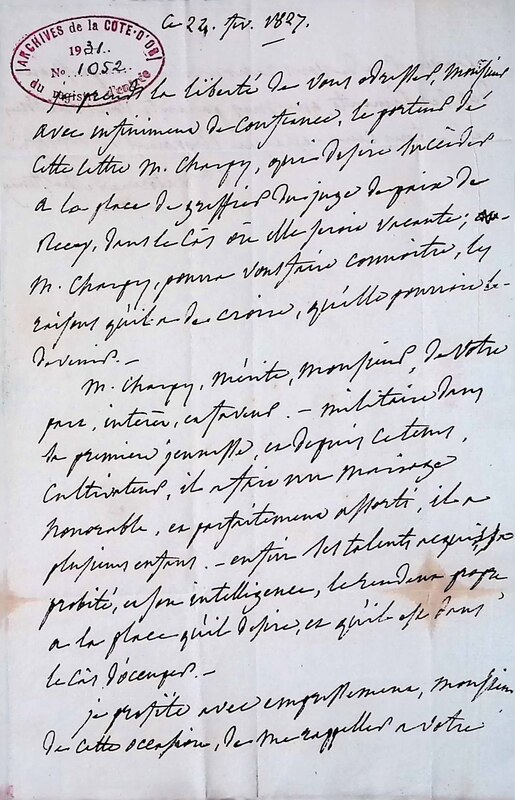 ce 22. fev. 1827.
ARCHIVES de la COTE-D'OR
1931.
No. 1052
du registre d'entrée
je prends la liberté de vous adresser, Monsieur
avec infiniment de Confiance, le porteur de
Cette lettre M. Charpy, qui desire succéder
a la place de greffier du juge de paix de
Recey, dans le Cas ou elle seroit vacante;
M. Charpy, pourra vous faire connoitre, les
raisons qu'il a de croire, qu'elle pourroit le
devenir. –
M. Charpy, mérite, Monsieur, de Votre
part, intérêt, et faveur. – militaire dans
sa premiere jeunesse, et depuis ce tems,
Cultivateur, il a fait un mariage
honorable, et parfaitement assorti, il a
plusieurs enfans. – enfin ses talents acquis, sa
probité, et son intelligence, le rendent propre
a la place qu'il desire, et qu'il est dans
le Cas d'occuper. –
je profite avec empressement, Monsieur
de cette occasion, de me rappeller a votre